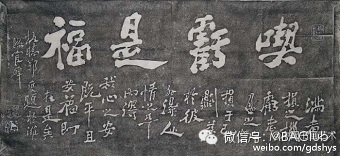 喫虧是福
滿者
損之機
虧者
盈之
損于己
於彼
外得人
情之平
内得
我心之安
既平且
安福即
在是矣
板橋鄭燮題於濰
縣官
微信号: MBA
艺术
http://weibo.com/gdshys